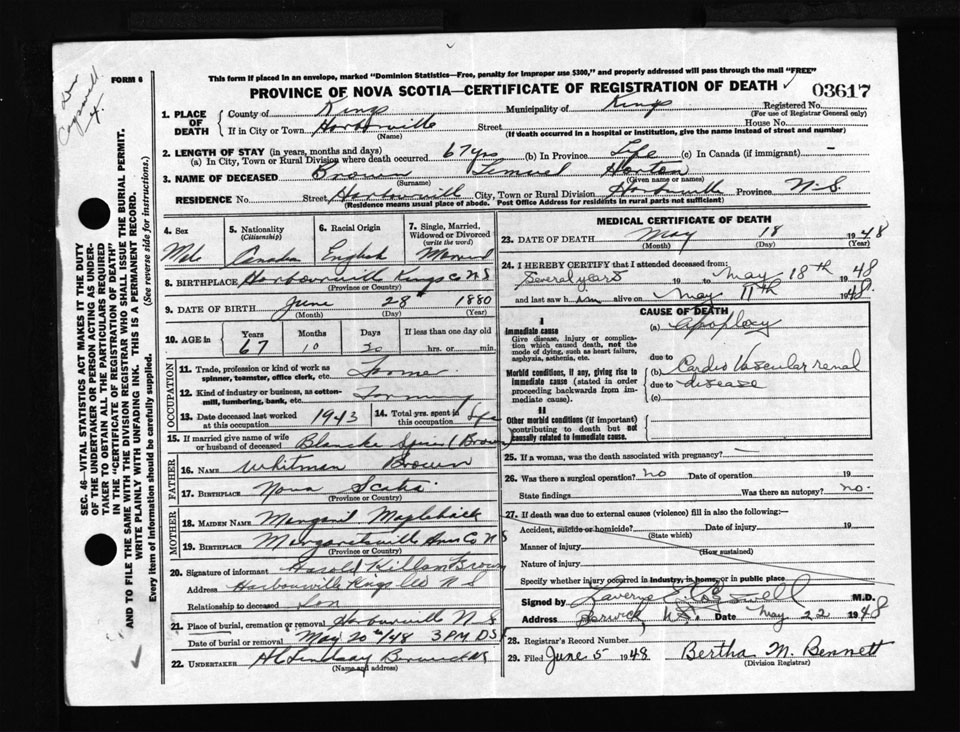 Dr
Cogswell
FORM 6
This form if placed in an envelope, marked "Dominion Statistics—Free, penalty for improper use $300," and properly addressed will pass through the mail "FREE"
PROVINCE OF NOVA SCOTIA—CERTIFICATE OF REGISTRATION OF DEATH
03617
1. PLACE OF DEATH
County of Kings Municipality of Kings Registered No.
(For use of Registrar General only)
If in City or Town Harborville Street House No.
(Name) (If death occurred in a hospital or institution, give the name instead of street and number)
2. LENGTH OF STAY (in years, months and days)
(a) In City, Town or Rural Division where death occurred 67 yrs (b) In Province Life (c) In Canada (if immigrant) —
3. NAME OF DECEASED Brown Lemuel Horton
(Surname) (Given name or names)
RESIDENCE No. Street Harborville City, Town or Rural Division Harborville Province N-S
(Residence means usual place of abode. Post Office Address for residents in rural parts not sufficient)
4. Sex
Male
5. Nationality
(Citizenship)
Canadian
6. Racial Origin
English
7. Single, Married, Widowed or Divorced
(write the word)
Married
8. BIRTHPLACE Harbourville Kings Co N S
(Province or Country)
9. DATE OF BIRTH June 28th 1880
(Month) (Day) (Year)
10. AGE in
Years Months Days If less than one day old
67 10 20 hrs. or min.
OCCUPATION
11. Trade, profession or kind of work as spinner, teamster, office clerk, etc. Farmer
12. Kind of industry or business, as cotton-mill, lumbering, bank, etc. Farming
13. Date deceased last worked at this occupation 1943
14. Total yrs. spent in this occupation Life
15. If married give name of wife or husband of deceased Blanche (Brown)
FATHER
16. NAME Whitman Brown
17. BIRTHPLACE Nova Scotia
(Province or Country)
MOTHER
18. MAIDEN NAME Margaret
19. BIRTHPLACE Margaretsville Ann Co N S
(Province or Country)
20. Signature of informant Harold Killam Brown
Address Harbourville Kings Co N S
Relationship to deceased Son
21. Place of burial, cremation or removal Harbourville N S
Date of burial or removal May 20th/48 3 PM DS
22. UNDERTAKER H C Lindsay Berwick NS
(Name and address)
MEDICAL CERTIFICATE OF DEATH
23. DATE OF DEATH May 18 1948
(Month) (Day) (Year)
24. I HEREBY CERTIFY that I attended deceased from:
Several years 19 to May 18th 1948
and last saw him alive on May 11th 1948.
CAUSE OF DEATH
I
Immediate cause
Give disease, injury or complication which caused death, not the mode of dying, such as heart failure, asphyxia, asthenia, etc.
(a) Apoplexy
Morbid conditions, if any, giving rise to immediate cause (stated in order proceeding backwards from immediate cause).
due to
(b) Cardio Vascular renal
due to disease
(c)
II
Other morbid conditions (if important) contributing to death but not causally related to immediate cause.
25. If a woman, was the death associated with pregnancy? —
26. Was there a surgical operation? no Date of operation 19
State findings Was there an autopsy? no.
27. If death was due to external causes (violence) fill in also the following:—
Accident, suicide or homicide? Date of injury 19
(State which)
Manner of injury
(How sustained)
Nature of injury
Specify whether injury occurred in industry, in home, or in public place
Signed by Laverge Cogswell M.D.
Address Berwick, N.S. Date May 22 1948
28. Registrar's Record Number
29. Filed June 5 1948 Bertha M. Bennett
(Division Registrar)
SEC. 46—VITAL STATISTICS ACT MAKES IT THE DUTY
OF THE UNDERTAKER OR PERSON ACTING AS UNDER-
TAKER TO OBTAIN ALL THE PARTICULARS REQUIRED
IN THE "CERTIFICATE OF REGISTRATION OF DEATH"
AND TO FILE THE SAME WITH THE DIVISION REGISTRAR WHO SHALL ISSUE THE BURIAL PERMIT.
WRITE PLAINLY WITH UNFADING INK. THIS IS A PERMANENT RECORD.
Every item of information should be carefully supplied. (See reverse side for instructions.)